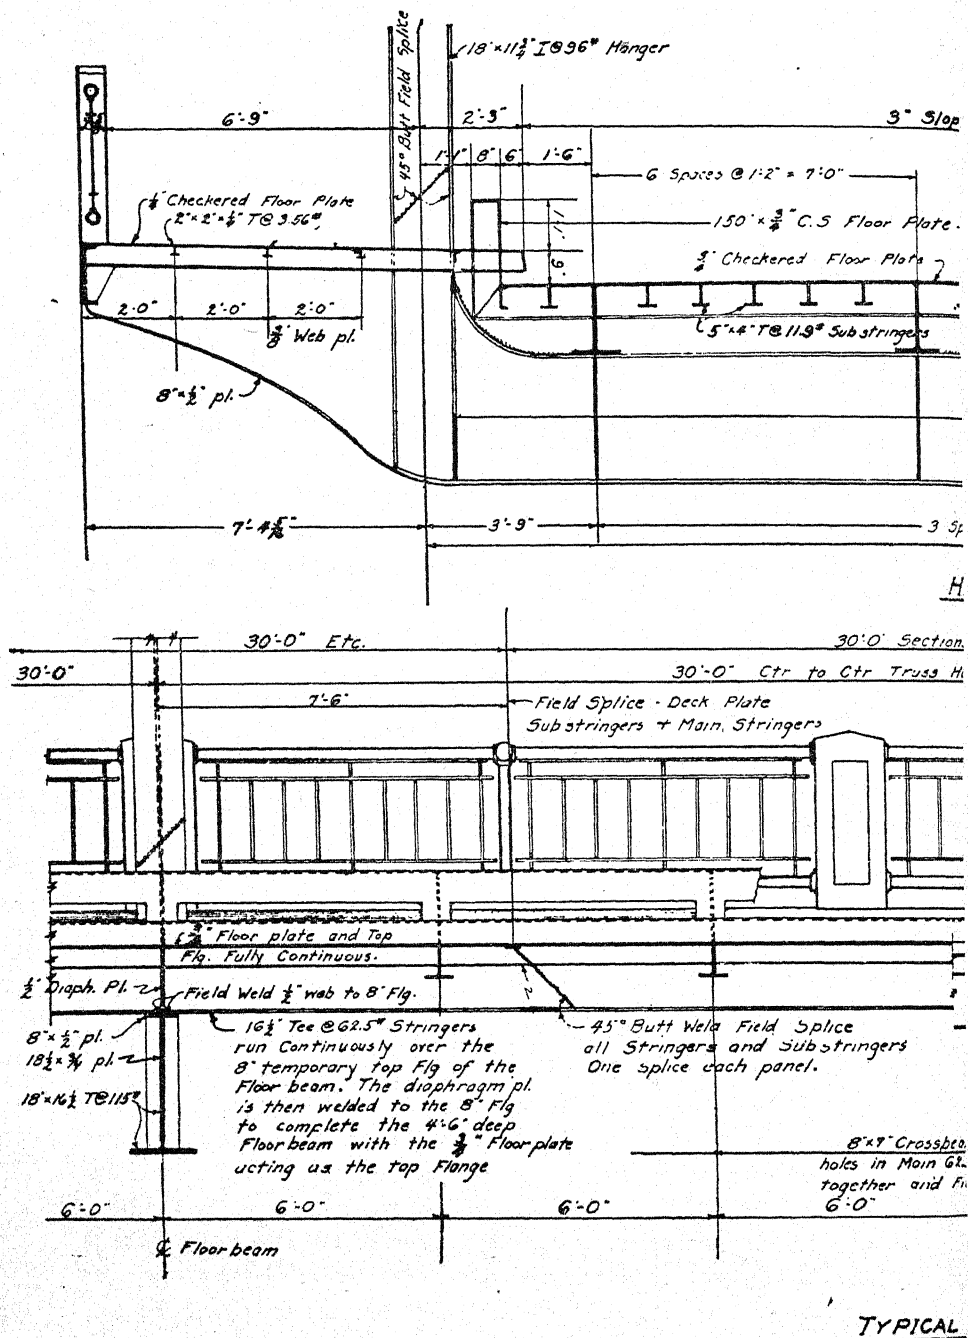 18"×11¾" I@96# Hanger
45° Butt Field Splice
6'-9"
2'-3"
3" Slop
1'-1"
8"
6"
1'-6"
6 Spaces @ 1'-2" = 7'-0"
¼" Checkered Floor Plate
2"×2"×¼" T@3.56#
150"×¾" C.S Floor Plate.
.11
.6
¾" Checkered Floor Plate
2'-0"
2'-0"
2'-0"
⅜" Web pl.
5"×4" T@11.9# Substringers
8"×½" pl.
7'-4 5/16"
3'-9"
3 Sp
H
30'-0" Etc.
30'-0" Section
30'-0"
30'-0" Ctr to Ctr Truss Ha
7'-6"
Field Splice - Deck Plate
Substringers + Main. Stringers
¾" Floor plate and Top
Flg. Fully Continuous.
½" Diaph. Pl.
Field Weld ½" web to 8" Flg.
2
8"×½" pl.
18½×¾ pl.
18"×16½ T@115#
16½" Tee @62.5# Stringers
run Continuously over the
8" temporary top Flg of the
Floor beam. The diaphragm pl.
is then welded to the 8" Flg
to complete the 4'-6" deep
Floorbeam with the ¾" Floorplate
acting as the top Flange
45° Butt Weld Field Splice
all Stringers and Substringers
One splice each panel.
8"×7" Crossbea
holes in Main 62.
together and Fi
6'-0"
6'-0"
6'-0"
6'-0"
℄ Floorbeam
TYPICAL